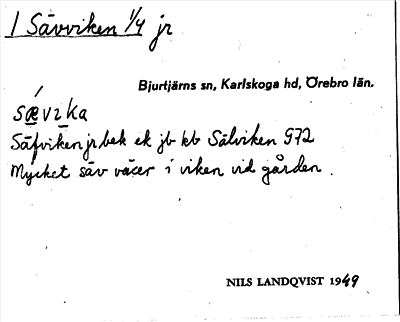 1 Sävviken 1/4 jr
Bjurtjärns sn, Karlskoga hd, Örebro län.
sævika
Säfviken jr bek ek jb kb Sälviken G72
Mycket säv växer i viken vid gården.
NILS LANDQVIST 1949